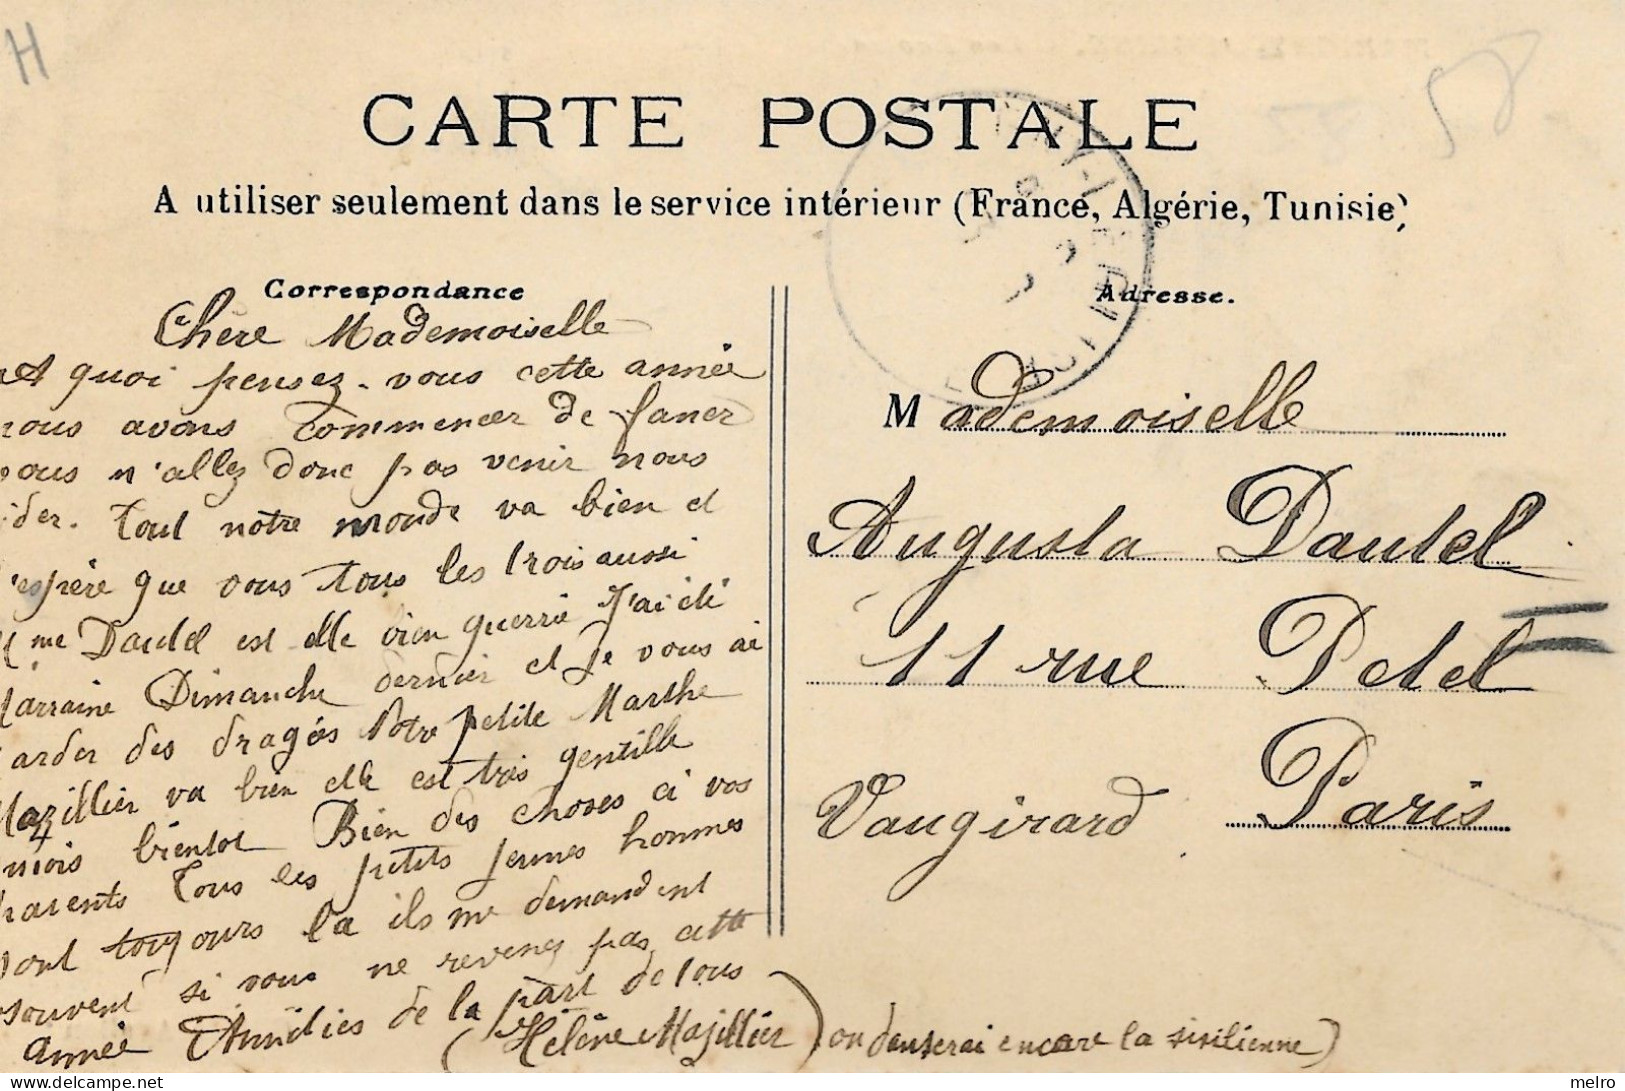 H
58
CARTE POSTALE
A utiliser seulement dans le service intérieur (France, Algérie, Tunisie)
Correspondance
Chère Mademoiselle
A quoi pensez-vous cette année
nous avons commencer de faner
vous n'allez donc pas venir nous
ider. Tout notre monde va bien et
'espère que vous tous les trois aussi
Mme Dautel est elle bien guerrie J'ai été
Marraine Dimanche dernier et je vous ai
arder des dragés Votre petite Marthe
Mazillier va bien elle est très gentille
4 mois bientot Bien des choses à vos
parents Tous les petits jeunes hommes
sont toujours la ils me demandent
souvent si vous ne revenez pas cette
année Amitiés de la part de tous
(Hélène Mazillier) on danserai encore la sisilienne)
Adresse.
Mademoiselle
Augusta Dautel
11 rue Petel
Vaugirard Paris
delcampe.net
melro